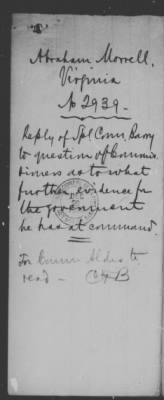 Abraham Morrell,
Virginia
No 2939.
Reply of Spl Com. Barry
to question of Commis
sioners as to what
further evidence for
the government
he has at command.
For Comm Aldis to
read —